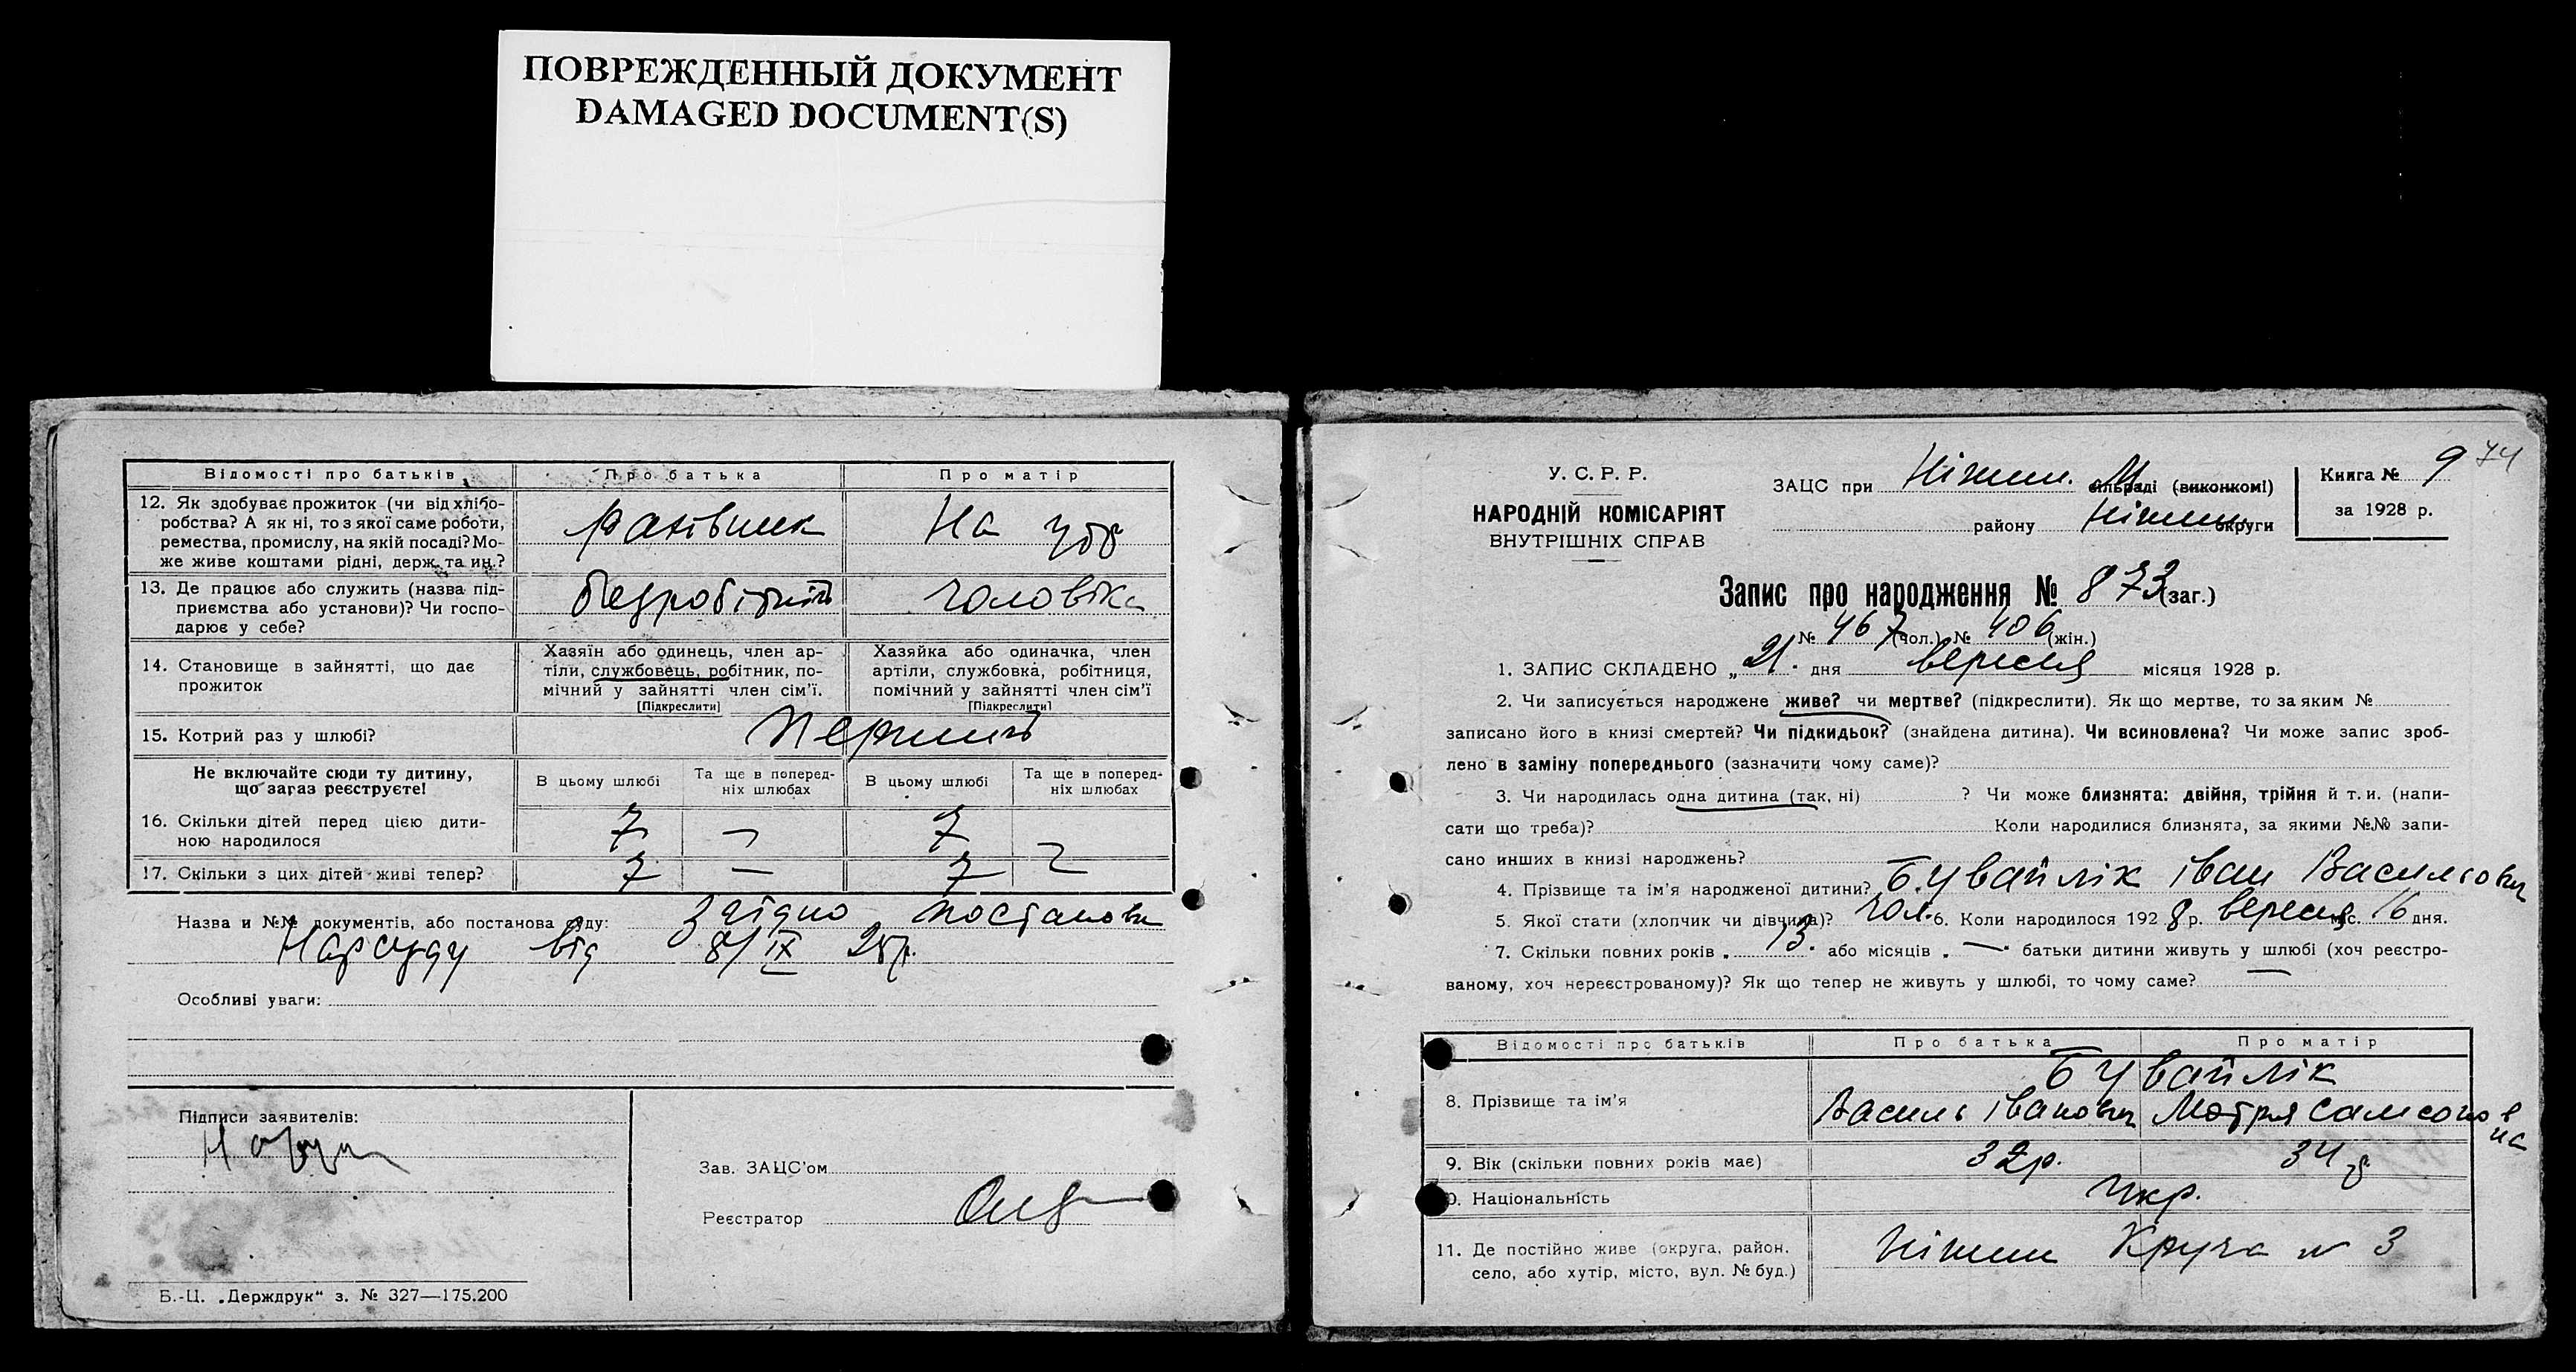 ПОВРЕЖДЕННЫЙ ДОКУМЕНТ
DAMAGED DOCUMENT(S)
Відомості про батьків
Про батька
Про матір
12. Як здобуває прожиток (чи від хлібо-
робства? А як ні, то з якої саме роботи,
ремества, промислу, на якій посаді? Мо-
же живе коштами рідні, держ. та ин.?
На утр
13. Де працює або служить (назва під-
приємства або установи)? Чи госпо-
дарює у себе?
безробітній
чоловіка
14. Становище в зайнятті, що дає
прожиток
Хазяїн або одинець, член ар-
тілі, службовець, робітник, по-
мічний у зайнятті член сім'ї.
[Підкреслити]
Хазяйка або одиначка, член
артілі, службовка, робітниця,
помічний у зайнятті член сім'ї
[Підкреслити]
15. Котрий раз у шлюбі?
Перший
Не включайте сюди ту дитину,
що зараз реєструєте!
В цьому шлюбі
Та ще в поперед-
ніх шлюбах
В цьому шлюбі
Та ще в поперед-
ніх шлюбах
16. Скільки дітей перед цією дити-
ною народилося
7 — 7
17. Скільки з цих дітей живі тепер?
7 — 7
Назва и №№ документів, або постанова суду: Згідно постанови
Нарсуду від 8/IX 28р.
Особливі уваги:
Підписи заявителів:
Зав. ЗАЦС'ом
Реєстратор
Б.-Ц. „Держдрук“ з. № 327—175.200
У. С. Р. Р.
НАРОДНІЙ КОМІСАРІЯТ
ВНУТРІШНІХ СПРАВ
ЗАЦС при Ніжин. М сільраді (виконкомі)
району Ніжин округи
Книга № 9
за 1928 р.
74
Запис про народження № 873 (заг.)
№ 467 (чол.) № 406 (жін.)
1. ЗАПИС СКЛАДЕНО „21. дня вересня місяця 1928 р.
2. Чи записується народжене живе? чи мертве? (підкреслити). Як що мертве, то за яким №
записано його в книзі смертей? Чи підкидьок? (знайдена дитина). Чи всиновлена? Чи може запис зроб-
лено в заміну попереднього (зазначити чому саме)?
3. Чи народилась одна дитина (так, ні) ? Чи може близнята: двійня, трійня й т. и. (напи-
сати що треба)? Коли народилися близнята, за якими №№ запи-
сано инших в книзі народжень?
4. Прізвище та ім'я народженої дитини? Бувайлік Іван Васильович
5. Якої стати (хлопчик чи дівчина)? чол. 6. Коли народилося 1928 р. вересня міс. 16 дня.
7. Скільки повних років „ 13. або місяців „ — " батьки дитини живуть у шлюбі (хоч реєстро-
ваному, хоч нереєстрованому)? Як що тепер не живуть у шлюбі, то чому саме? —
Відомості про батьків
Про батька
Про матір
8. Прізвище та ім'я
Бувайлік
Василь Іванович
Мотря Самсонов
на
9. Вік (скільки повних років має)
32р.
34 р
10. Національність
Укр.
11. Де постійно живе (округа, район,
село, або хутір, місто, вул. № буд.)
Ніжин Круча № 3